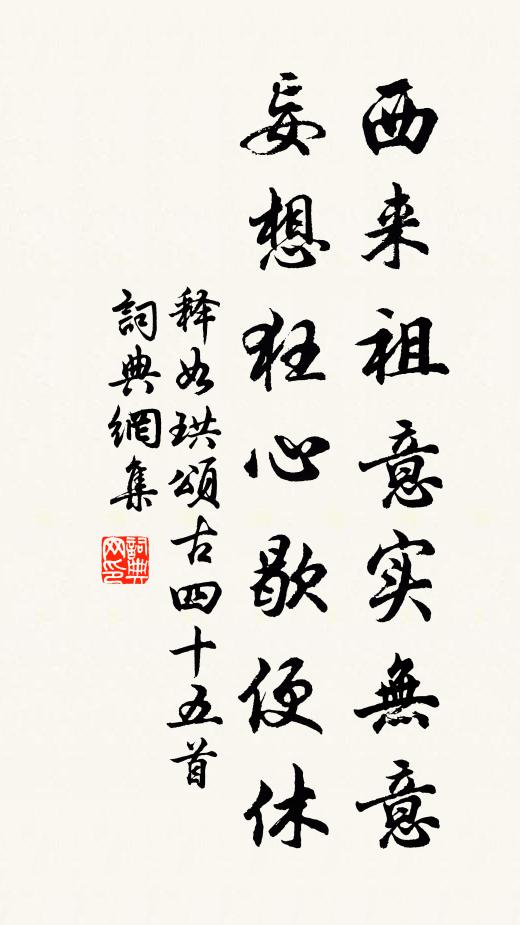 西来祖意实無意
妄想狂心歇便休
释如珙頌古四十五首
詞典網集
詞典网印